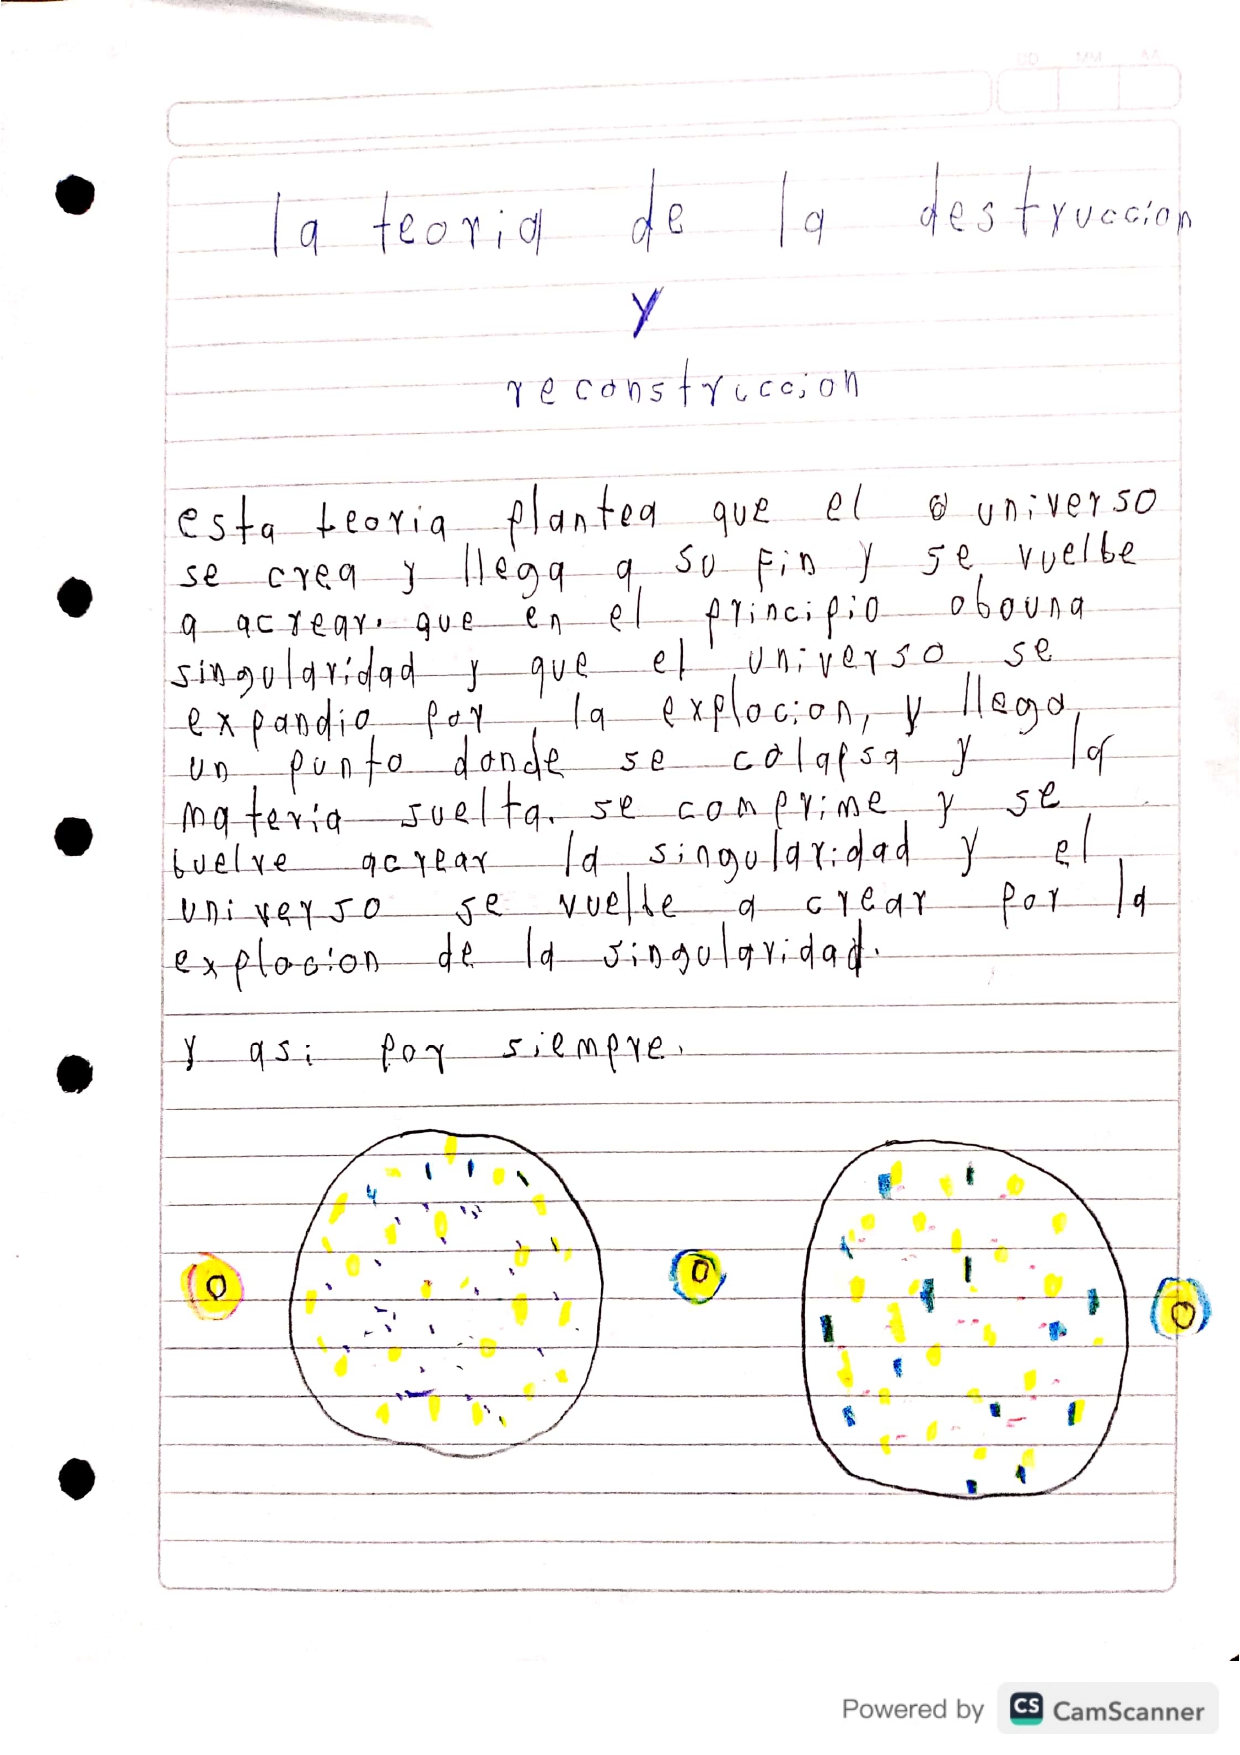 DD MM AA
la teoria de la destruccion
y
reconstruccion
esta teoria plantea que el universo
se crea y llega a su fin y se vuelbe
a acrear. que en el principio obouna
singularidad y que el universo se
expandio por la explocion, y llego
un punto donde se colapsa y la
materia suelta. se comprime y se
buelve acrear la singularidad y el
universo se vuelbe a crear por la
explocion de la singularidad.
y asi por siempre.
Powered by CS CamScanner